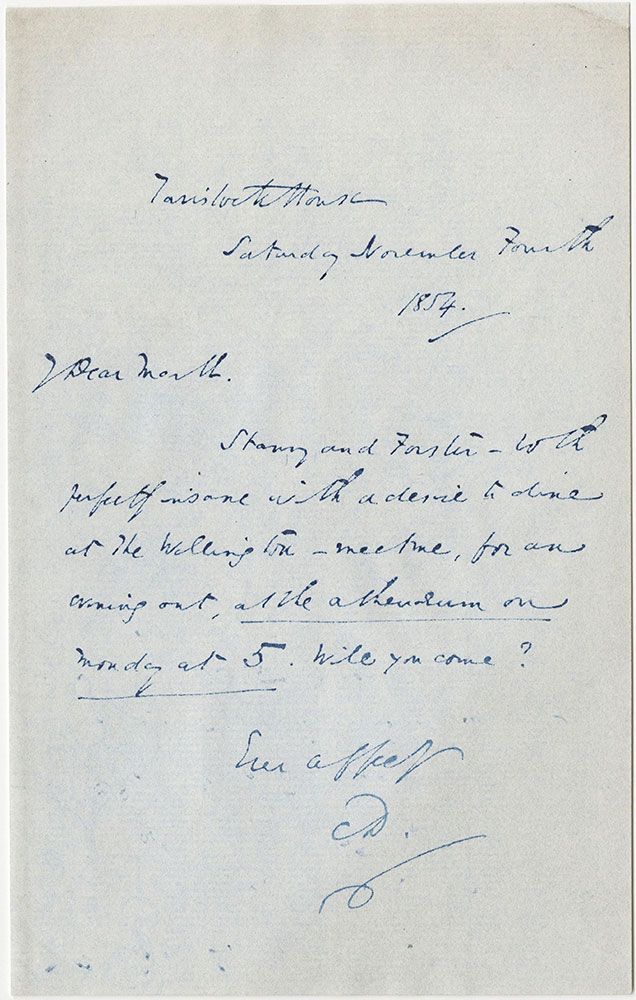 Tavistock House
Saturday November Fourth
1854.
My Dear Mark.
Stanny and Forster – both
perfectly insane with a desire to dine
at the Wellington – meet me, for an
evening out, at the Athenaeum on
Monday at 5. Will you come?
Ever affecy
CD.